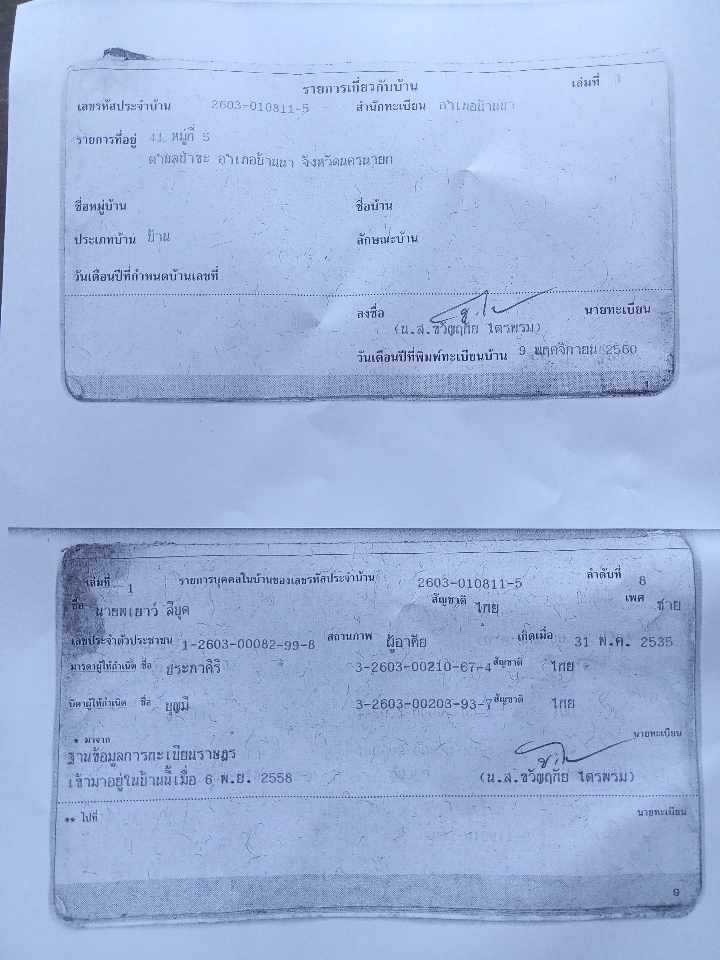 รายการเกี่ยวกับบ้าน เล่มที่ 1
เลขรหัสประจำบ้าน 2603-010811-5 สำนักทะเบียน อำเภอบ้านนา
รายการที่อยู่ 41 หมู่ที่ 5
ตำบลป่าขะ อำเภอบ้านนา จังหวัดนครนายก
ชื่อหมู่บ้าน ชื่อบ้าน
ประเภทบ้าน บ้าน ลักษณะบ้าน
วันเดือนปีที่กำหนดบ้านเลขที่
ลงชื่อ นายทะเบียน
(น.ส.ขวัญฤทัย ไตรพรม)
วันเดือนปีที่พิมพ์ทะเบียนบ้าน 9 พฤศจิกายน 2560
1
เล่มที่ 1 รายการบุคคลในบ้านของเลขรหัสประจำบ้าน 2603-010811-5 ลำดับที่ 8
ชื่อ นายพเยาว์ สีบุด สัญชาติ ไทย เพศ ชาย
เลขประจำตัวประชาชน 1-2603-00082-99-8 สถานภาพ ผู้อาศัย เกิดเมื่อ 31 พ.ค. 2535
มารดาผู้ให้กำเนิด ชื่อ ประภาศิริ 3-2603-00210-67-4 สัญชาติ ไทย
บิดาผู้ให้กำเนิด ชื่อ บุญมี 3-2603-00203-93-7 สัญชาติ ไทย
* มาจาก นายทะเบียน
ฐานข้อมูลการทะเบียนราษฎร
เข้ามาอยู่ในบ้านนี้เมื่อ 6 พ.ย. 2558 (น.ส.ขวัญฤทัย ไตรพรม)
** ไปที่ นายทะเบียน
9